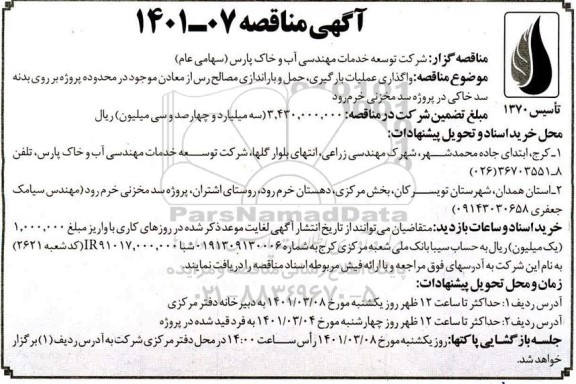 آگهی مناقصه ۰۷-۱۴۰۱
تأسیس ۱۳۷۰
مناقصه گزار: شرکت توسعه خدمات مهندسی آب و خاک پارس (سهامی عام)
موضوع مناقصه: واگذاری عملیات بارگیری، حمل و باراندازی مصالح رس از معادن موجود در محدوده پروژه بر روی بدنه
سد خاکی در پروژه سد مخزنی خرم رود
مبلغ تضمین شرکت در مناقصه: ۳,۴۳۰,۰۰۰,۰۰۰ (سه میلیارد و چهارصد و سی میلیون) ریال
محل خرید اسناد و تحویل پیشنهادات:
۱ـ کرج، ابتدای جاده محمدشهر، شهرک مهندسی زراعی، انتهای بلوار گلها، شرکت توسعه خدمات مهندسی آب و خاک پارس، تلفن
۸ـ۳۶۷۰۳۵۵۱(۰۲۶)
۲ـ استان همدان، شهرستان تویسرکان، بخش مرکزی، دهستان خرم رود، روستای اشتران، پروژه سد مخزنی خرم رود (مهندس سیامک
جعفری ۰۹۱۴۳۰۳۰۶۵۸)
خرید اسناد و ساعات بازدید: متقاضیان می‌توانند از تاریخ انتشار آگهی لغایت موعد ذکر شده در روزهای کاری با واریز مبلغ ۱,۰۰۰,۰۰۰
(یک میلیون) ریال به حساب سیبا بانک ملی شعبه مرکزی کرج به شماره ۰۱۰۹۱۳۰۹۱۳۰۰۶ شبا IR۹۱۰۱۷,۰۰۰,۰۰۰ (کد شعبه ۲۶۲۱)
به نام این شرکت به آدرسهای فوق مراجعه و با ارائه فیش مربوطه اسناد مناقصه را دریافت نمایند.
زمان و محل تحویل پیشنهادات:
آدرس ردیف ۱: حداکثر تا ساعت ۱۲ ظهر روز یکشنبه مورخ ۱۴۰۱/۰۳/۰۸ به دبیرخانه دفتر مرکزی
آدرس ردیف ۲: حداکثر تا ساعت ۱۲ ظهر روز چهارشنبه مورخ ۱۴۰۱/۰۳/۰۴ به فرد قید شده در پروژه
جلسه بازگشایی پاکتها: روز یکشنبه مورخ ۱۴۰۱/۰۳/۰۸ رأس ساعت ۱۴:۰۰ در محل دفتر مرکزی شرکت به آدرس ردیف (۱) برگزار
خواهد شد.
ParsNamadData
۰۲۱-۸۸۳۴۹۶۷۰-۵